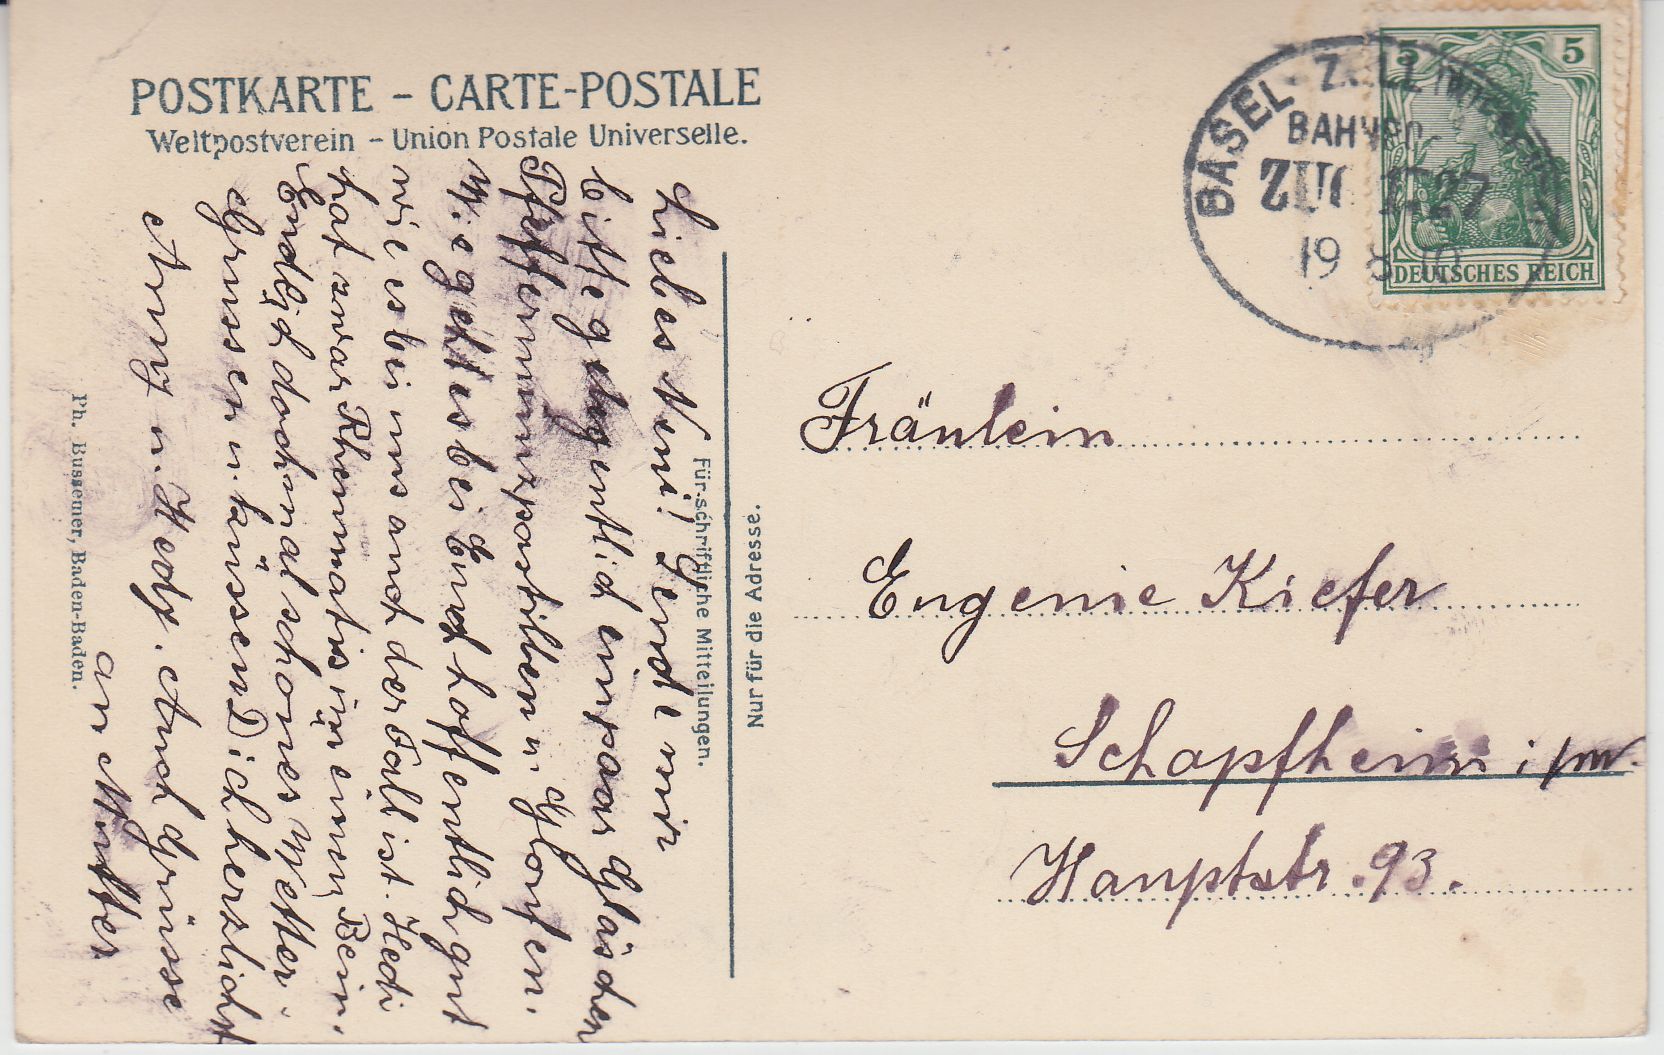 POSTKARTE – CARTE-POSTALE
Weltpostverein – Union Postale Universelle.
Liebes Neni! Sende mir
bitte gelegentlich ein paar Gläschen
Pfeffermünzpastillen u.
Wie geht es bei Euch hoffentlich gut
wie es bei uns auch der Fall ist. Hedi
hat zwar Rheumatis in einem Bein.
Endlich doch mal schönes Wetter.
Grüssen u. küssen Dich herzlichst
Anny u. Hedy. Auch Grüsse
an Mutter
Für schriftliche Mitteilungen.
Nur für die Adresse.
Ph. Bussemer, Baden-Baden.
5 5
DEUTSCHES REICH
BASEL
ZUG 1727
19 8 10
Fräulein
Eugenie Kiefer
Schopfheim i/W.
Hauptstr. 93.